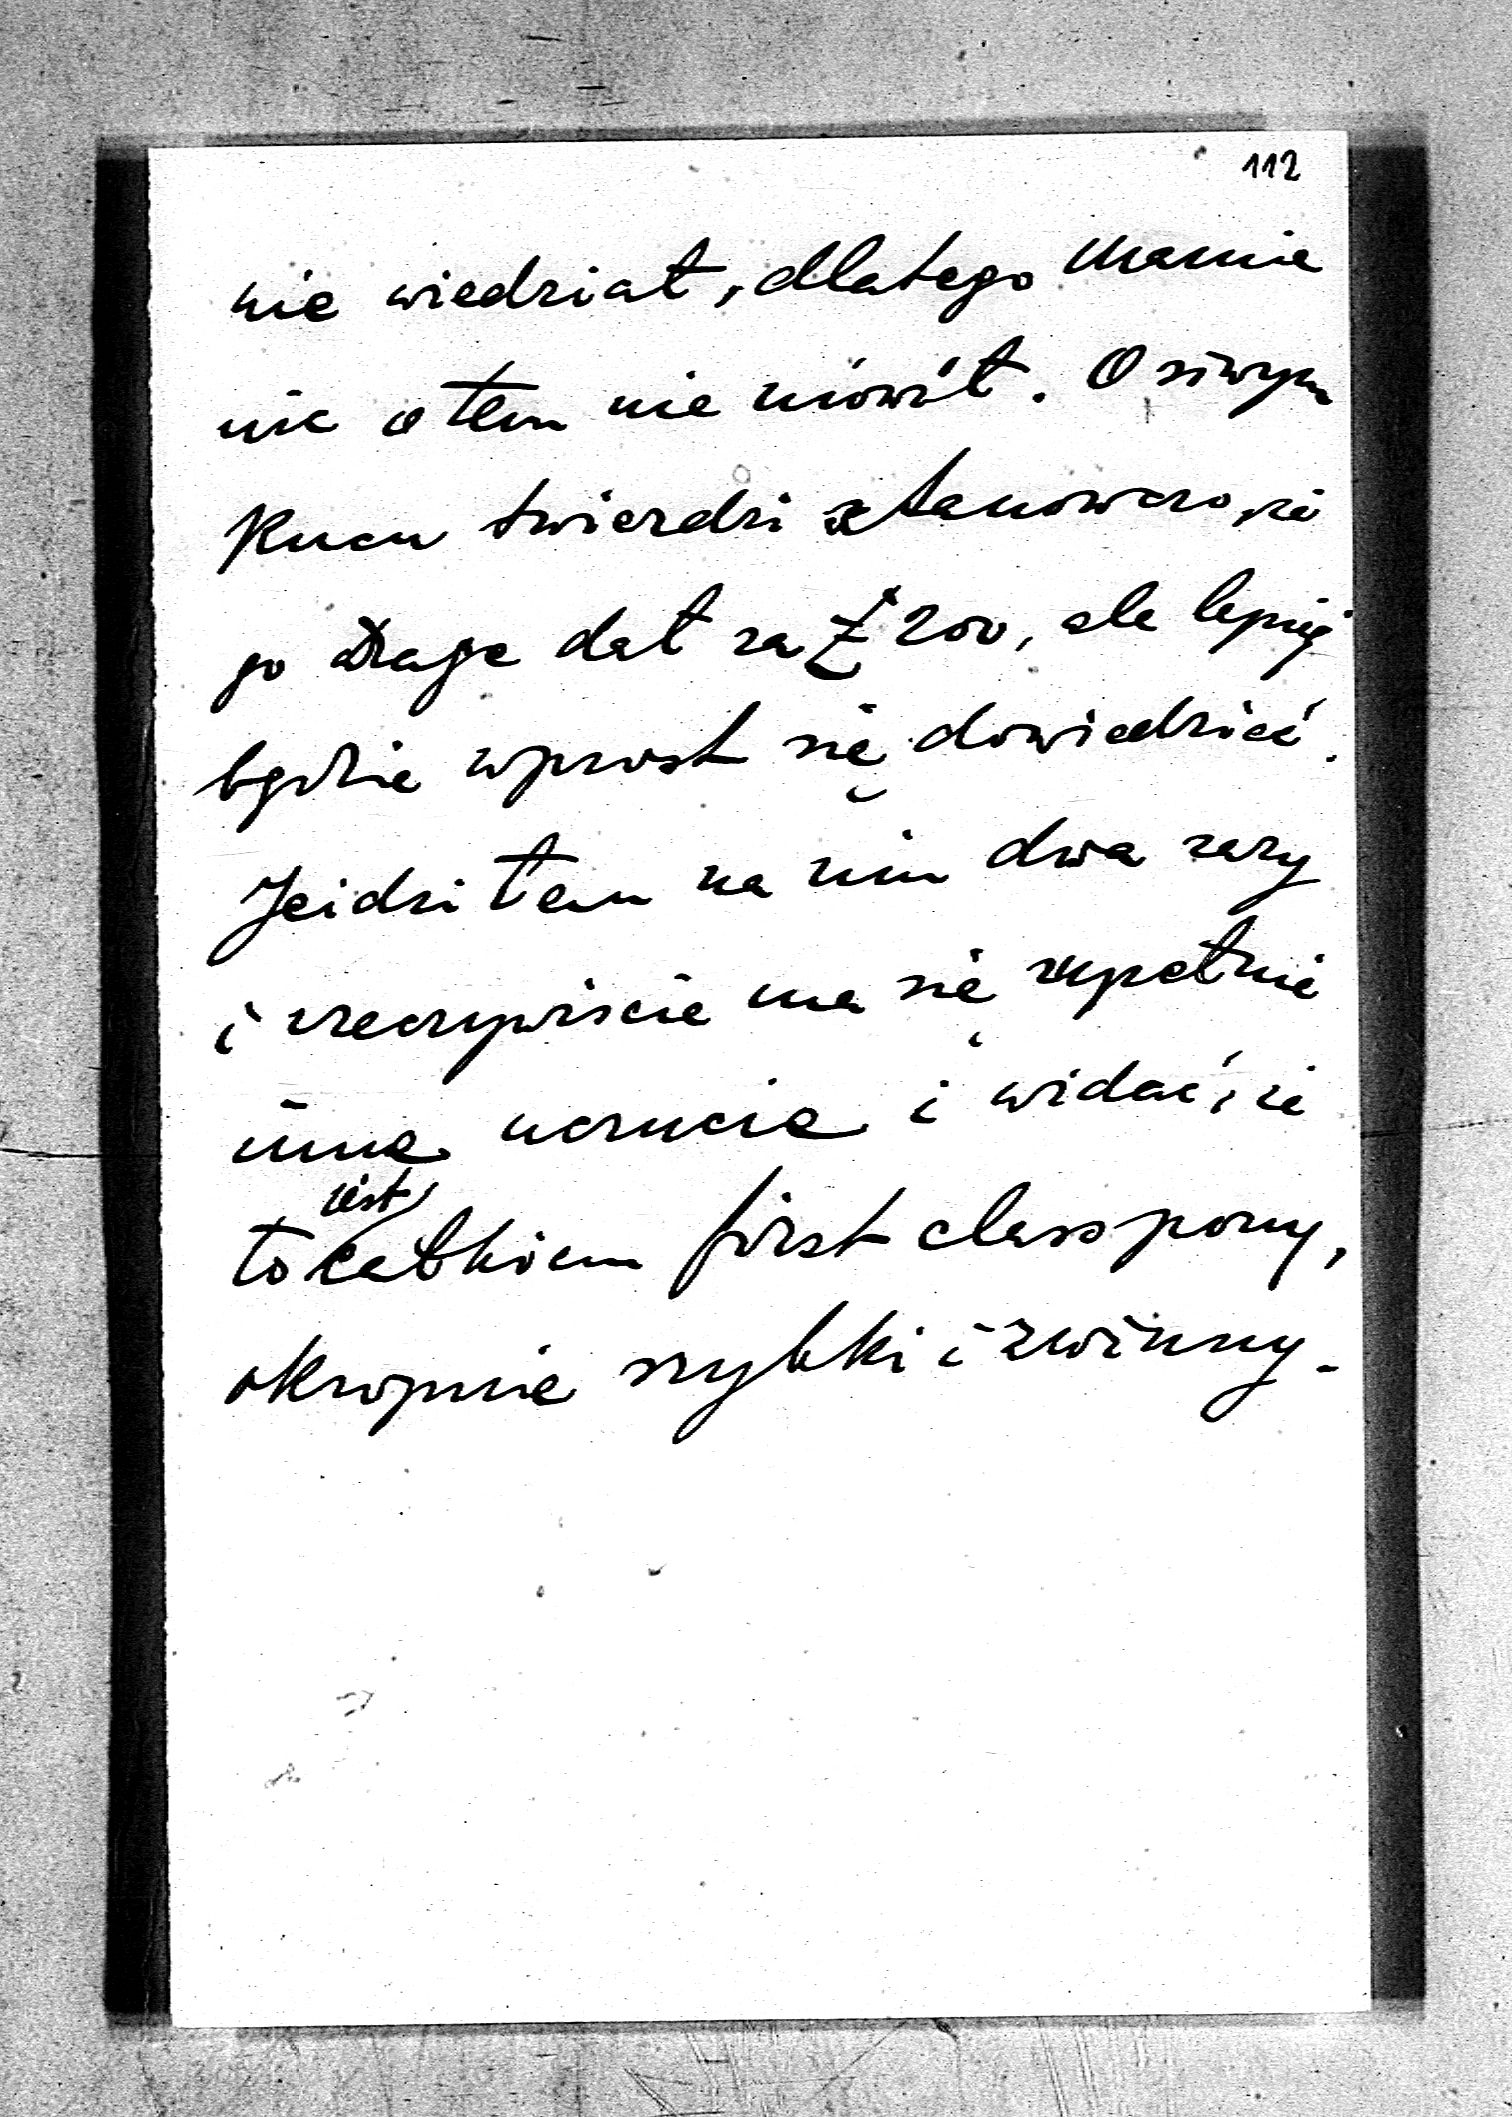 112
nie wiedział, dlatego Mamie
nic o tem nie mówił. O siwym
Kucu twierdzi stanowczo, że
go Drage dał za £ 200, ale lepiej
będzie wprost się dowiedzieć.
Jeździłem na nim dwa razy
i rzeczywiście ma się zupełnie
inne uczucie i widać, że
jest
to całkiem first class pony,
okropnie szybki i zwinny.